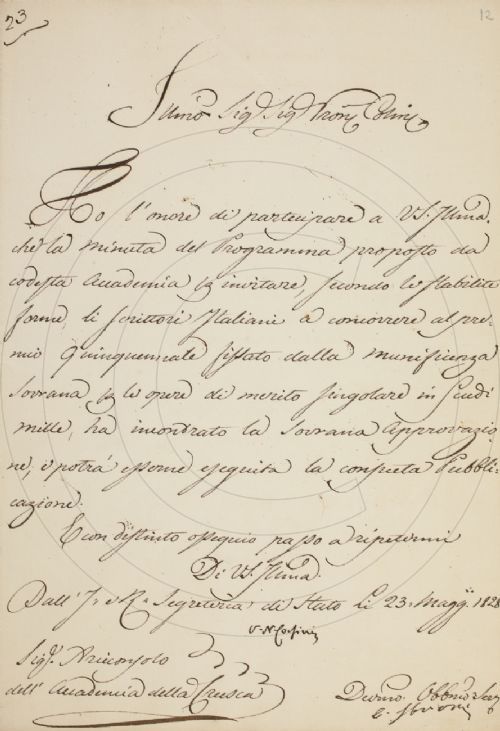 23
12
Illmo Sig.re Sig.re Pron. Colmo
Ho l'onore di partecipare a VS. Illma.
che la minuta del Programma proposto da
codesta Accademia per invitare, secondo le stabilite
forme, li scrittori Italiani a concorrere al pre-
mio Quinquennale fissato dalla munificenza
Sovrana per le opere di merito singolare in Scudi
mille, ha incontrato la Sovrana Approvazio
ne, e potrà esserne eseguita la consueta Pubbli-
cazione.
E con distinto ossequio passo a ripetermi
Di VS. Illma.
Dall' I. e R. Segreteria di Stato li 23. Magg. 1828
V. N. Corsini
Sig.r Arciconsolo
dell' Accademia della Crusca
Devmo Obbmo